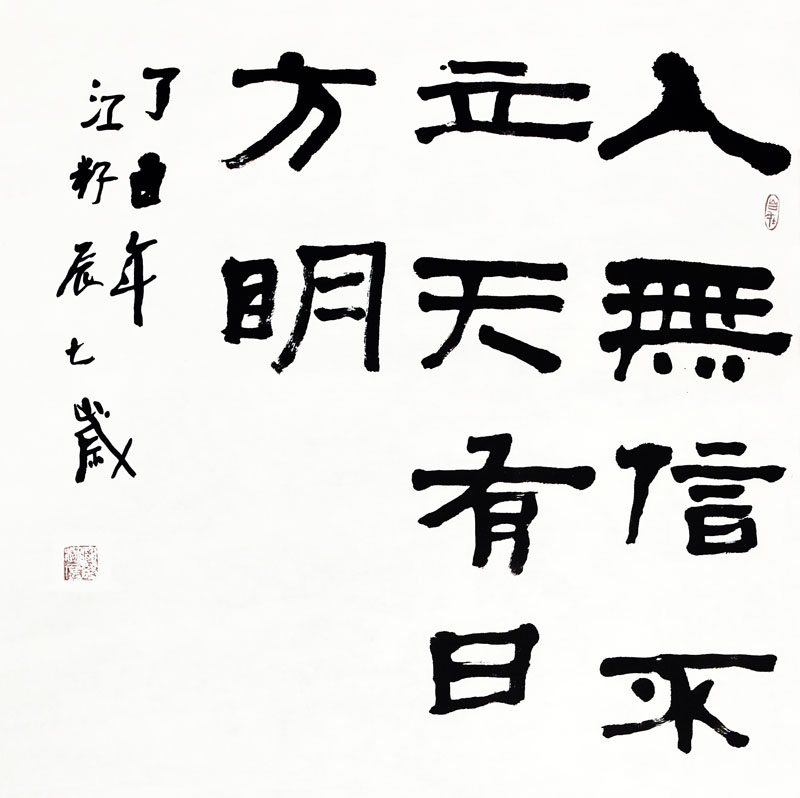 人無信不
立天有日
方明
丁酉年
江籽辰七歲